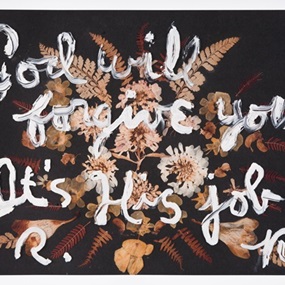 God will
forgive you
It's His job
R.